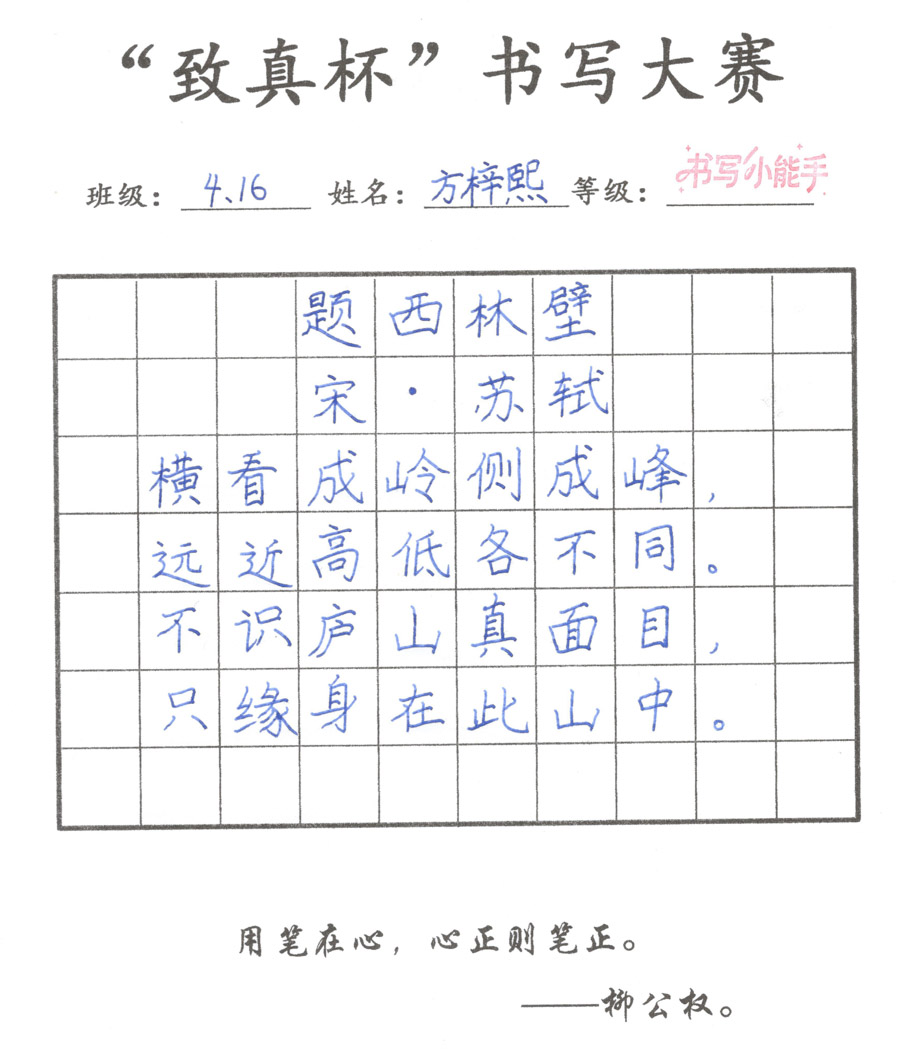 “致真杯”书写大赛
班级：4.16 姓名：方梓熙 等级：书写小能手
题西林壁
宋·苏轼
横看成岭侧成峰，
远近高低各不同。
不识庐山真面目，
只缘身在此山中。
用笔在心，心正则笔正。
——柳公权。